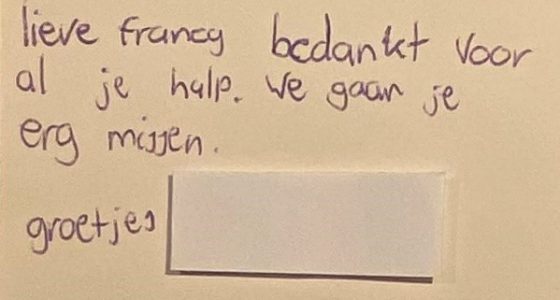 lieve francy bedankt voor
al je hulp. we gaan je
erg missen.
groetjes